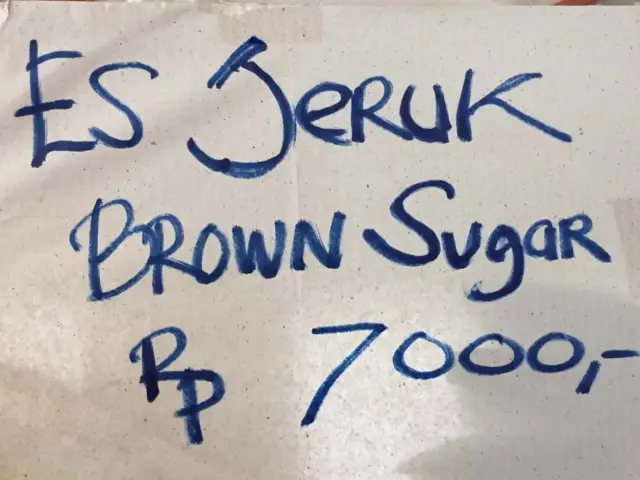 ES JERUK
BROWN SUGAR
RP 7000,-